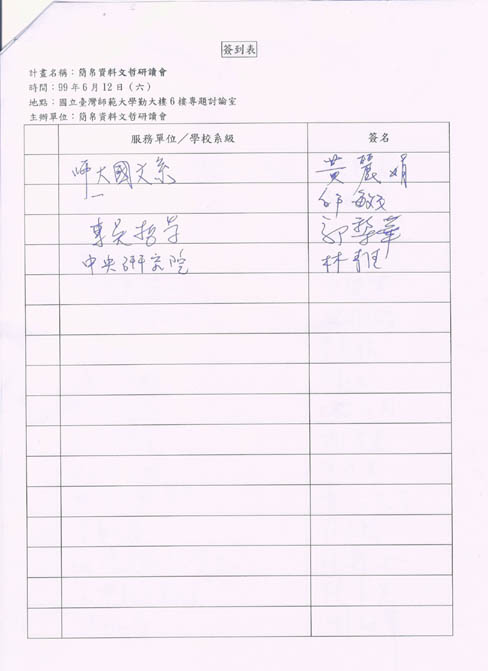 簽到表
計畫名稱：簡帛資料文哲研讀會
時間：99 年 6 月 12 日（六）
地點：國立臺灣師範大學勤大樓 6 樓專題討論室
主辦單位：簡帛資料文哲研讀會
服務單位／學校系級 簽名
師大國文系 黃麗娟
東吳哲學 郭梨華
中央研究院